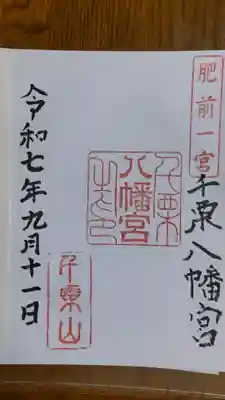 肥前一宮
千栗八幡宮
八幡宮
千栗山
令和七年九月十一日